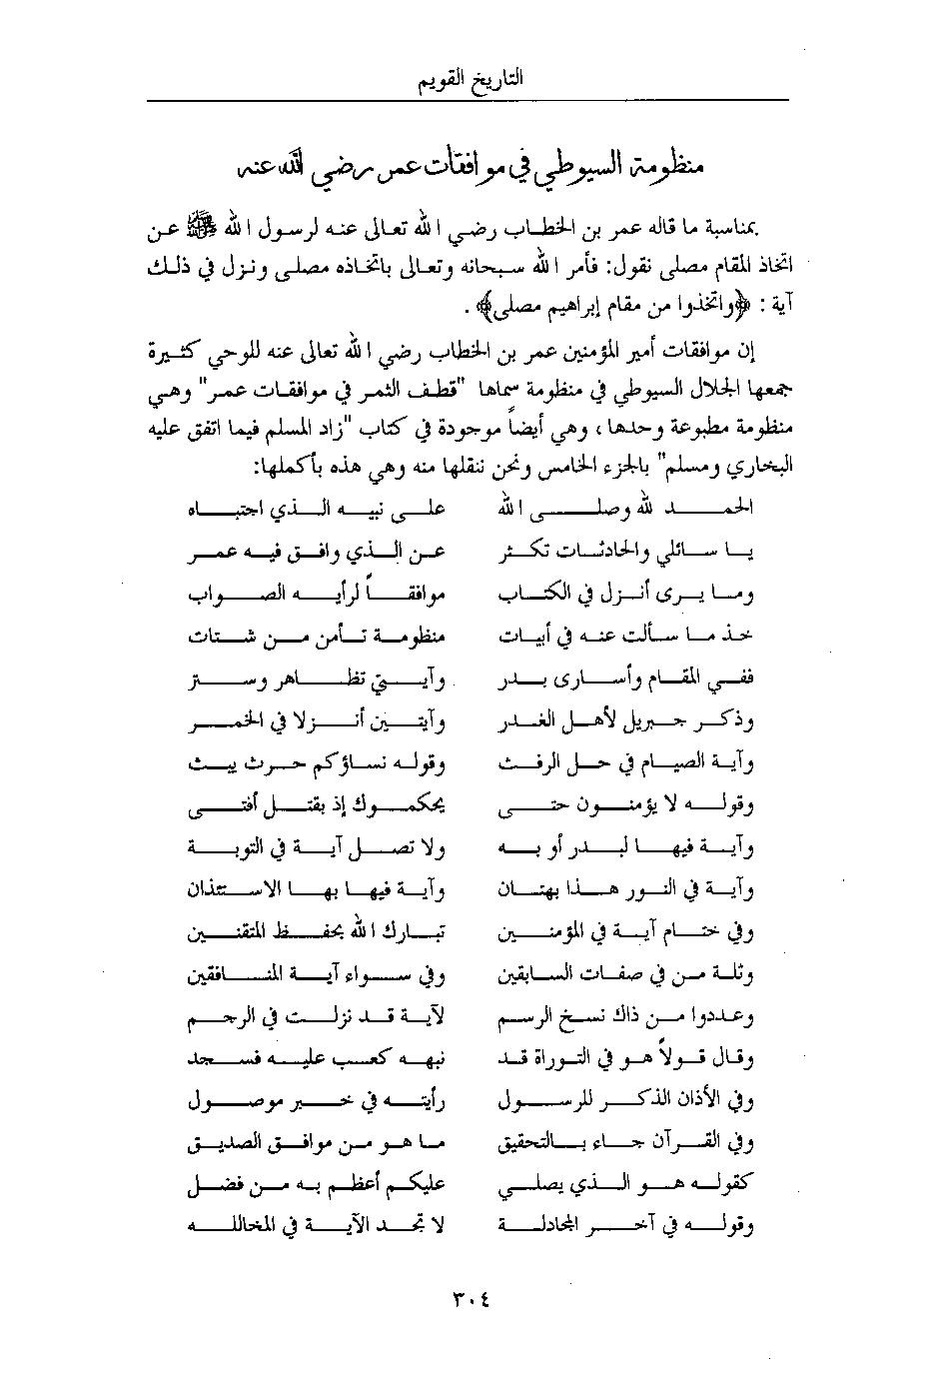 التاريخ القويم
منظومة السيوطي في موافقات عمر رضي الله عنه
بمناسبة ما قاله عمر بن الخطاب رضي الله تعالى عنه لرسول الله ﷺ عن
اتخاذ المقام مصلى نقول: فأمر الله سبحانه وتعالى باتخاذه مصلى ونزل في ذلك
آية : ﴿واتخذوا من مقام إبراهيم مصلى﴾ .
إن موافقات أمير المؤمنين عمر بن الخطاب رضي الله تعالى عنه للوحي كثيرة
جمعها الجلال السيوطي في منظومة سماها "قطف الثمر في موافقات عمر" وهي
منظومة مطبوعة وحدها، وهي أيضاً موجودة في كتاب "زاد المسلم فيما اتفق عليه
البخاري ومسلم" بالجزء الخامس ونحن ننقلها منه وهي هذه بأكملها:
الحمد لله وصلى الله على نبيه الذي اجتباه
يا سائلي والحادثات تكثر عن الذي وافق فيه عمر
وما يرى أنزل في الكتاب موافقاً لرأيه الصواب
خذ ما سألت عنه في أبيات منظومة تأمن من شتات
ففي المقام وأسارى بدر وآيتي تظاهر وستر
وذكر جبريل لأهل الغدر وآيتين أنزلا في الخمر
وآية الصيام في حل الرفث وقوله نساؤكم حرث يبث
وقوله لا يؤمنون حتى يحكموك إذ بقتل أفتى
وآية فيها لبدر أو به ولا تصل آية في التوبة
وآية في النور هذا بهتان وآية فيها بها الاستئذان
وفي ختام آية في المؤمنين تبارك الله بحفظ المتقنين
وثلة من في صفات السابقين وفي سواء آية المنافقين
وعددوا من ذاك نسخ الرسم لآية قد نزلت في الرجم
وقال قولاً هو في التوراة قد نبهه كعب عليه فسجد
وفي الأذان الذكر للرسول رأيته في خبر موصول
وفي القرآن جاء بالتحقيق ما هو من موافق الصديق
كقوله هو الذي يصلي عليكم أعظم به من فضل
وقوله في آخر المجادلة لا تجد الآية في المخالله
٣٠٤